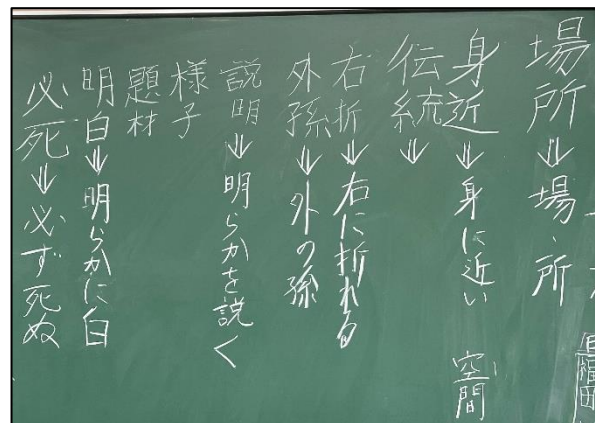 場所⇒場、所
身近⇒身に近い 空間
伝統⇒
右折⇒右に折れる
外孫⇒外の孫
説明⇒明らかを説く
様子
題材
明白⇒明らかに白
必死⇒必ず死ぬ